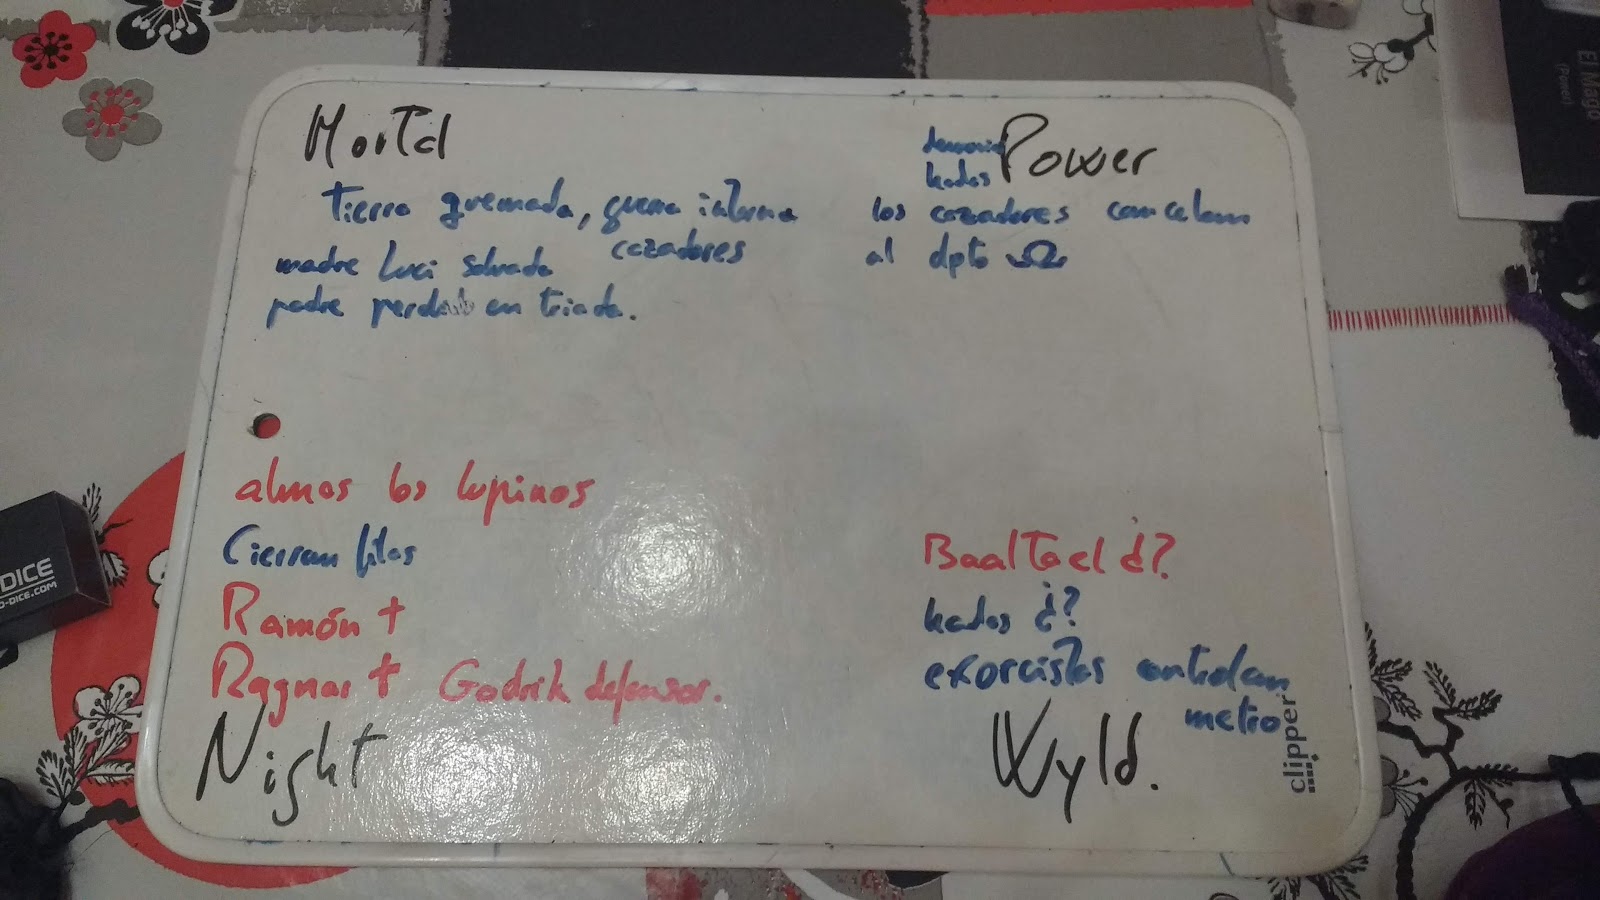 Mortal
Tierra quemada, guerra interna
cazadores
madre Luci salvada
padre perdido en triada.
demonio
hadas
Power
los cazadores cancelan
al dpto Ω
almas los lupinos
Cierran filas
Ramón +
Ragnar + Godrik defensor.
Night
BaalTael ¿?
hadas ¿?
exorcistas controlan
metro
Wyld.
clipper
DICE
O-DICE.COM
El Mago
(Poner)